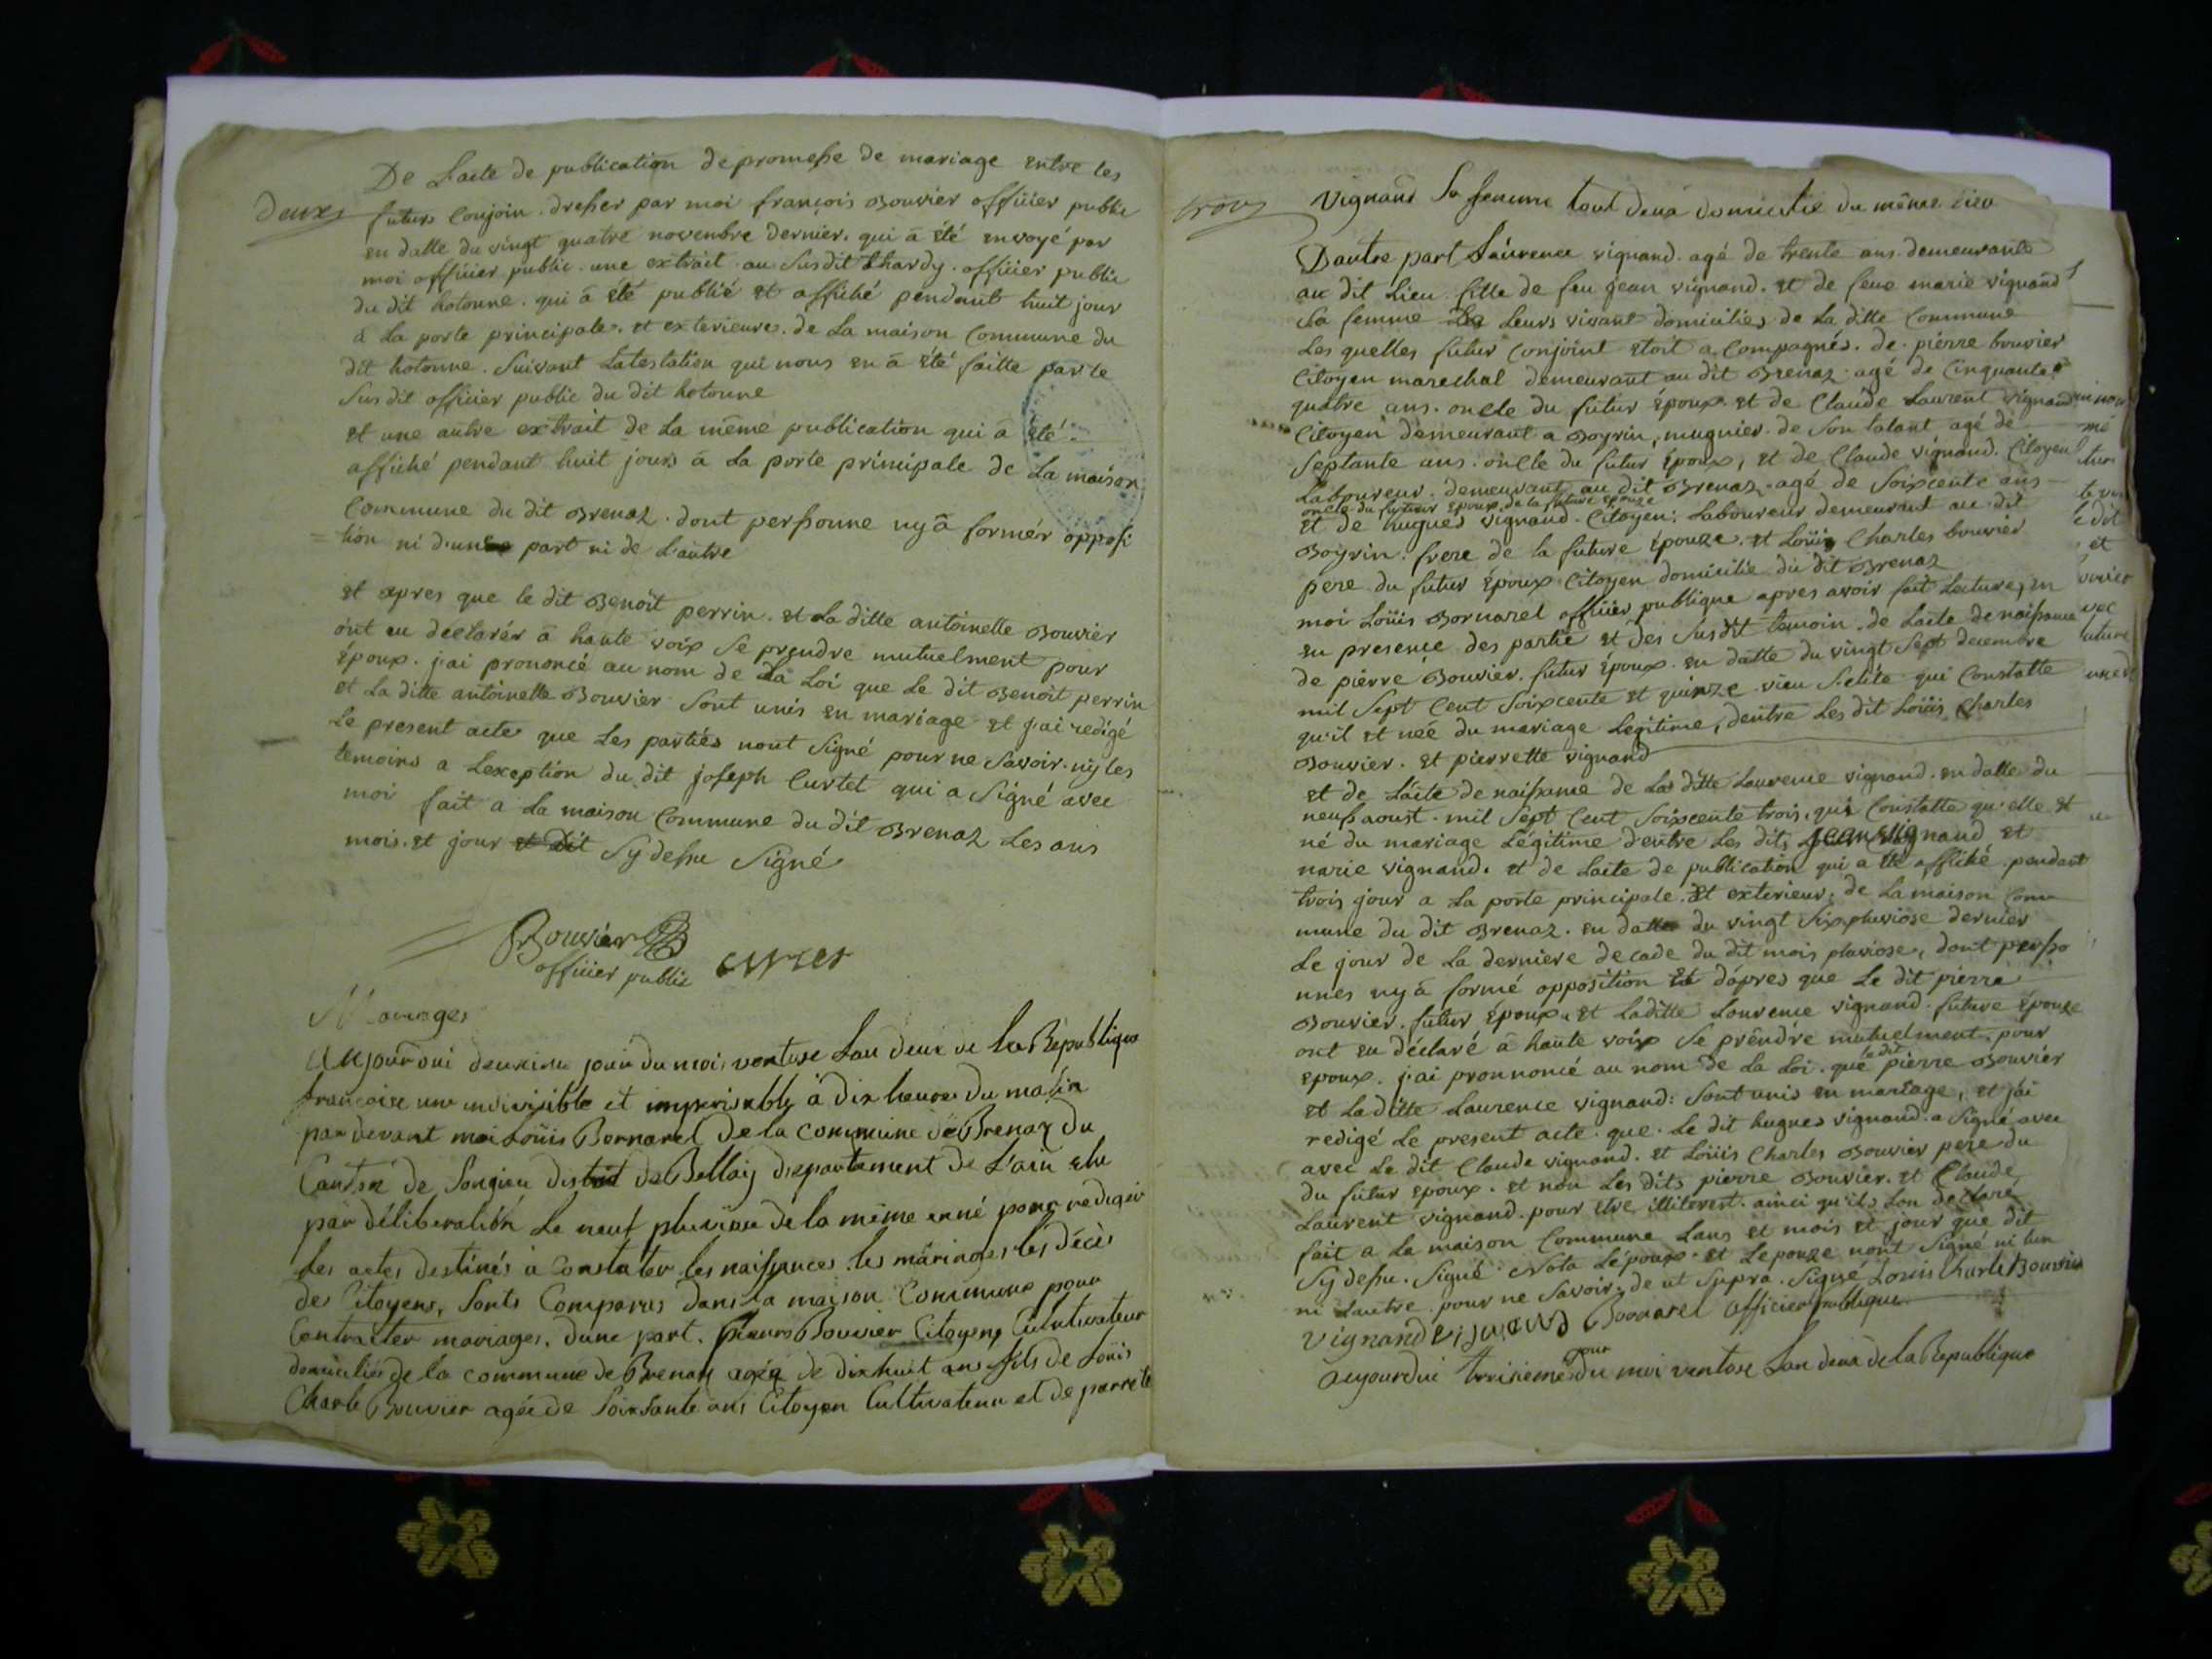 deuxs
De L'acte de publication de promesse de mariage entre les
futurs Conjoin. dresser par moi françois Bouvier officier public
en datte du vingt quatre novembre dernier. qui à été envoyé par
moi officier public. une extrait au Susdit Lhardy. officier public
du dit hotonne. qui à été publié et affiché pendant huit jour
à La porte principale. et exterieure. de La maison Commune du
dit hotonne. Suivant Latestation qui nous en à été faitte par le
Sus dit officier public du dit hotonne
et une autre extrait de La même publication qui à été
affiché pendant huit jours à La porte principale de La maison
Commune du dit Brenaz. dont perssonne ny à formér opposi
= tion ni d'une part ni de L'autre
et apres que le dit Benoit perrin. et La ditte antoinette Bouvier
ont eu déclarér à haute voix Se prendre mutuelment pour
époux. j'ai prononcé au nom de La Loi que Le dit Benoit perrin
et La ditte antoinette Bouvier Sont unis en mariage et j'ai redigé
Le present acte que Les partiés nont Signé pour ne Savoir. ny les
temoins a Lexeption du dit joseph Curtet qui a Signé avec
moi fait a La maison Commune du dit Brenaz Les ans
mois. et jour et dit Sy dessu Signé
Bouvier
officier public
Mariages
Aujourdui deuxieme jour du moi ventose Lan deux de la Republique
francoise une indivisible et imperisable à dix heures du matin
par devant moi Loüis Bornarel De la commune de Brenaz du
Canton de Songieu district de Bellay departement de L'ain elu
par déliberation Le neuf pluviose de la même anné pour redigér
les actes destinés à Constater les naissances. les mariages les décès
des Citoyens, Sonts Comparus Dans la maison Commune pour
Contracter mariages. dune part. pierre Bouvier Citoyen Cultivateur
domiciliés de la commune de Brenaz agéz de dixhuit ans fils de Loüis
Charle Bouvier agée de Soixsante ans Citoyen Cultivateur et de parrete
trois
Vignand Sa femme tout deux domicilié du même lieu
Dautre part Laurence vignand. agé de trente ans. demeurante
au dit Lieu fille de feu jean vignand. et de feue marie vignand
Sa femme Leurs vivant domiciliés de La ditte Commune
Les quelles futur Conjoint étoit a Compagnés. de pierre bouvier
Citoyen marechal demeurant au dit Brenaz. agé de Cinquante
quatre ans. oncle du futur époux. et de Claude Laurent vignand
Citoyen demeurant a Boyrin, mugnier de Son talant agé de
Septante ans. oncle du futur époux, et de Claude vignand. Citoyen
Laboureur. demeurant au dit Brenaz. agé de Soixcente ans
oncle du futur époux, de la future épouze
et de hugues vignand. Citoyen. Laboureur demeurant au dit
Boyrin. frere de la future épouze. et Loüis Charles bouvier
pere du futur époux Citoyen domicilie du dit Brenaz
moi Loüis Bornarel officier publique apres avoir fait Lecture, en
en presence des partie et des Susdit temoin. de Lacte de naissance
de pierre Bouvier. futur époux. en datte du vingt Sept decembre
mil Sept Cent Soixcente et quinze vieu Stile qui Constatte
qu'il et née du mariage Legitime, dentre Les dit Loüis Charles
Bouvier. et pierrette vignand
et de Lacte de naissance de La ditte Laurence vignand. en datte du
neuf aoust. mil Sept Cent Soixcente trois. qui Constatte qu'elle et
né du mariage Légitime d'entre Les dits jean vignand et
marie vignand. et de Lacte de publication qui a été affiché pendant
trois jour a La porte principale. et exterieur. de La maison Com
mune du dit Brenaz. en datte du vingt Six pluviose dernier
Le jour de La derniere decade du dit mois pluviose, dont persso
nnes ny à formé opposition et d'apres que Le dit pierre
Bouvier. futur époux. et Laditte Laurence vignand. future épouze
ont eu déclaré à haute voix Se prendre mutuelment. pour
epoux. j'ai prononcé au nom de La Loi. que le dit pierre Bouvier
et La ditte Laurence vignand: Sont unis en mariage, et j'ai
redigé Le present acte. que. Le dit hugues vignand. a Signé avec
avec Le dit Claude vignand. et Loüis Charles Bouvier pere du
du futur époux. et non Les dits pierre Bouvier. et Claude
Laurent vignand. pour etre illiterest. ainci qu'ils Lon declaré
fait a La maison Commune Lans et mois et jour que dit
Sy dessu. Signé. Nota Lépoux. et Lepouze nont Signé ni lun
ni Lautre pour ne Savoir. de ut Supra. Signé Louis Charle Bouvier
vignand vignand Bornarel officier publique
aujourdui troisieme jour du moi ventose Lan deux de la Republique